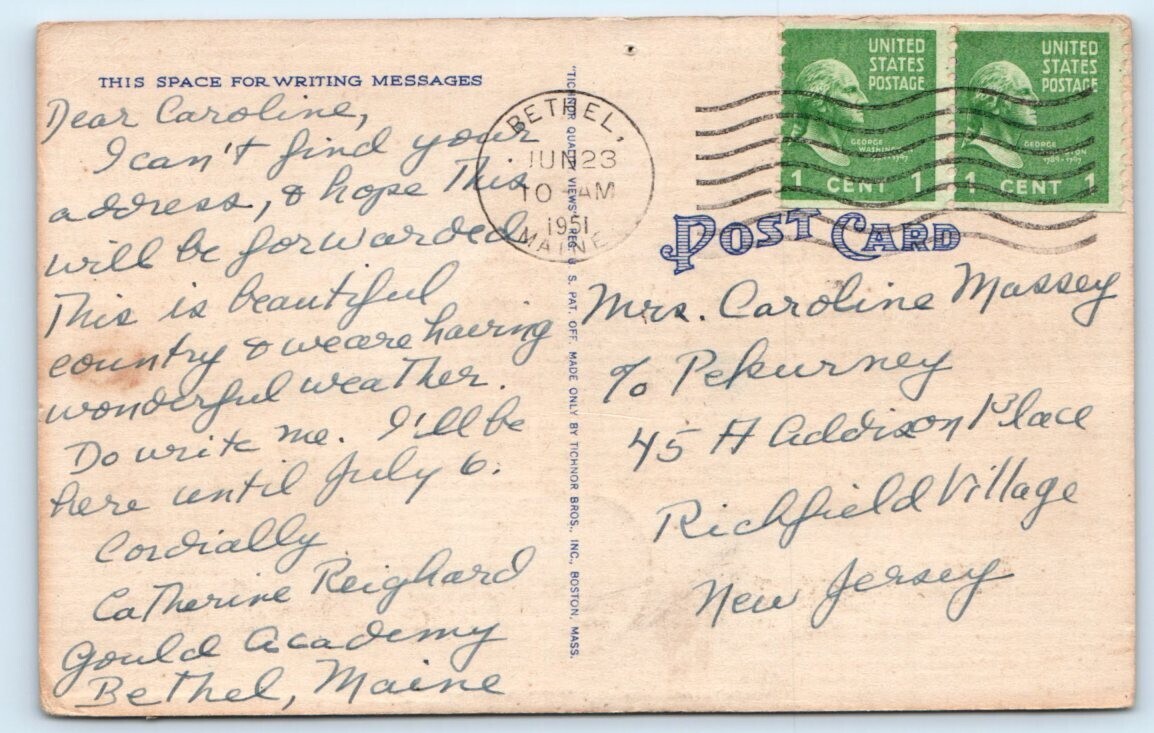 THIS SPACE FOR WRITING MESSAGES
Dear Caroline,
I can't find your
address, & hope This
will be forwarded
This is beautiful
country & we are having
wonderful weather.
Do write me. I'll be
here until July 6.
Cordially
Catherine Reighard
Gould Academy
Bethel, Maine
"TICHNOR QUALITY VIEWS" REG. U. S. PAT. OFF. MADE ONLY BY TICHNOR BROS., INC., BOSTON, MASS.
BETHEL,
JUN 23
10 AM
1951
MAINE
UNITED
STATES
POSTAGE
GEORGE
WASHINGTON
1 CENT 1
UNITED
STATES
POSTAGE
GEORGE
WASHINGTON
1789-1797
1 CENT 1
POST CARD
Mrs. Caroline Massey
c/o Pekurney
45 A Addison Place
Richfield Village
New Jersey